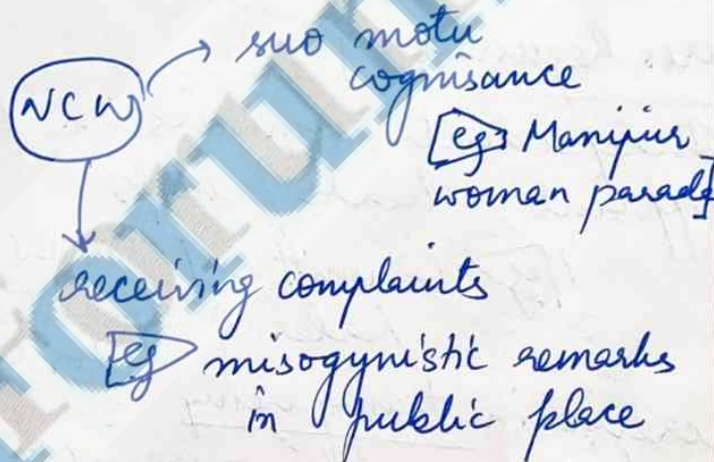 suo motu
cognisance
NCW
eg Manipur
woman parade]
receiving complaints
eg misogynistic remarks
in public place
forum